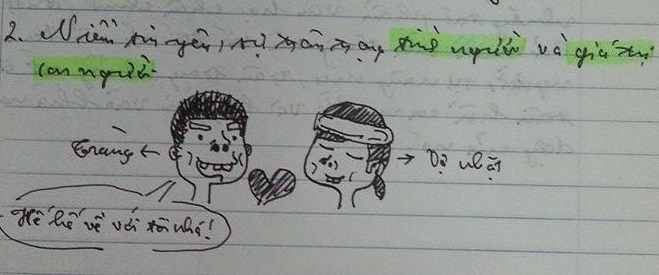 2. Niềm tin yêu, sự trân trọng tình người và giá trị
con người
Tràng
Vợ nhặt
Hế hế về với tôi nhá!